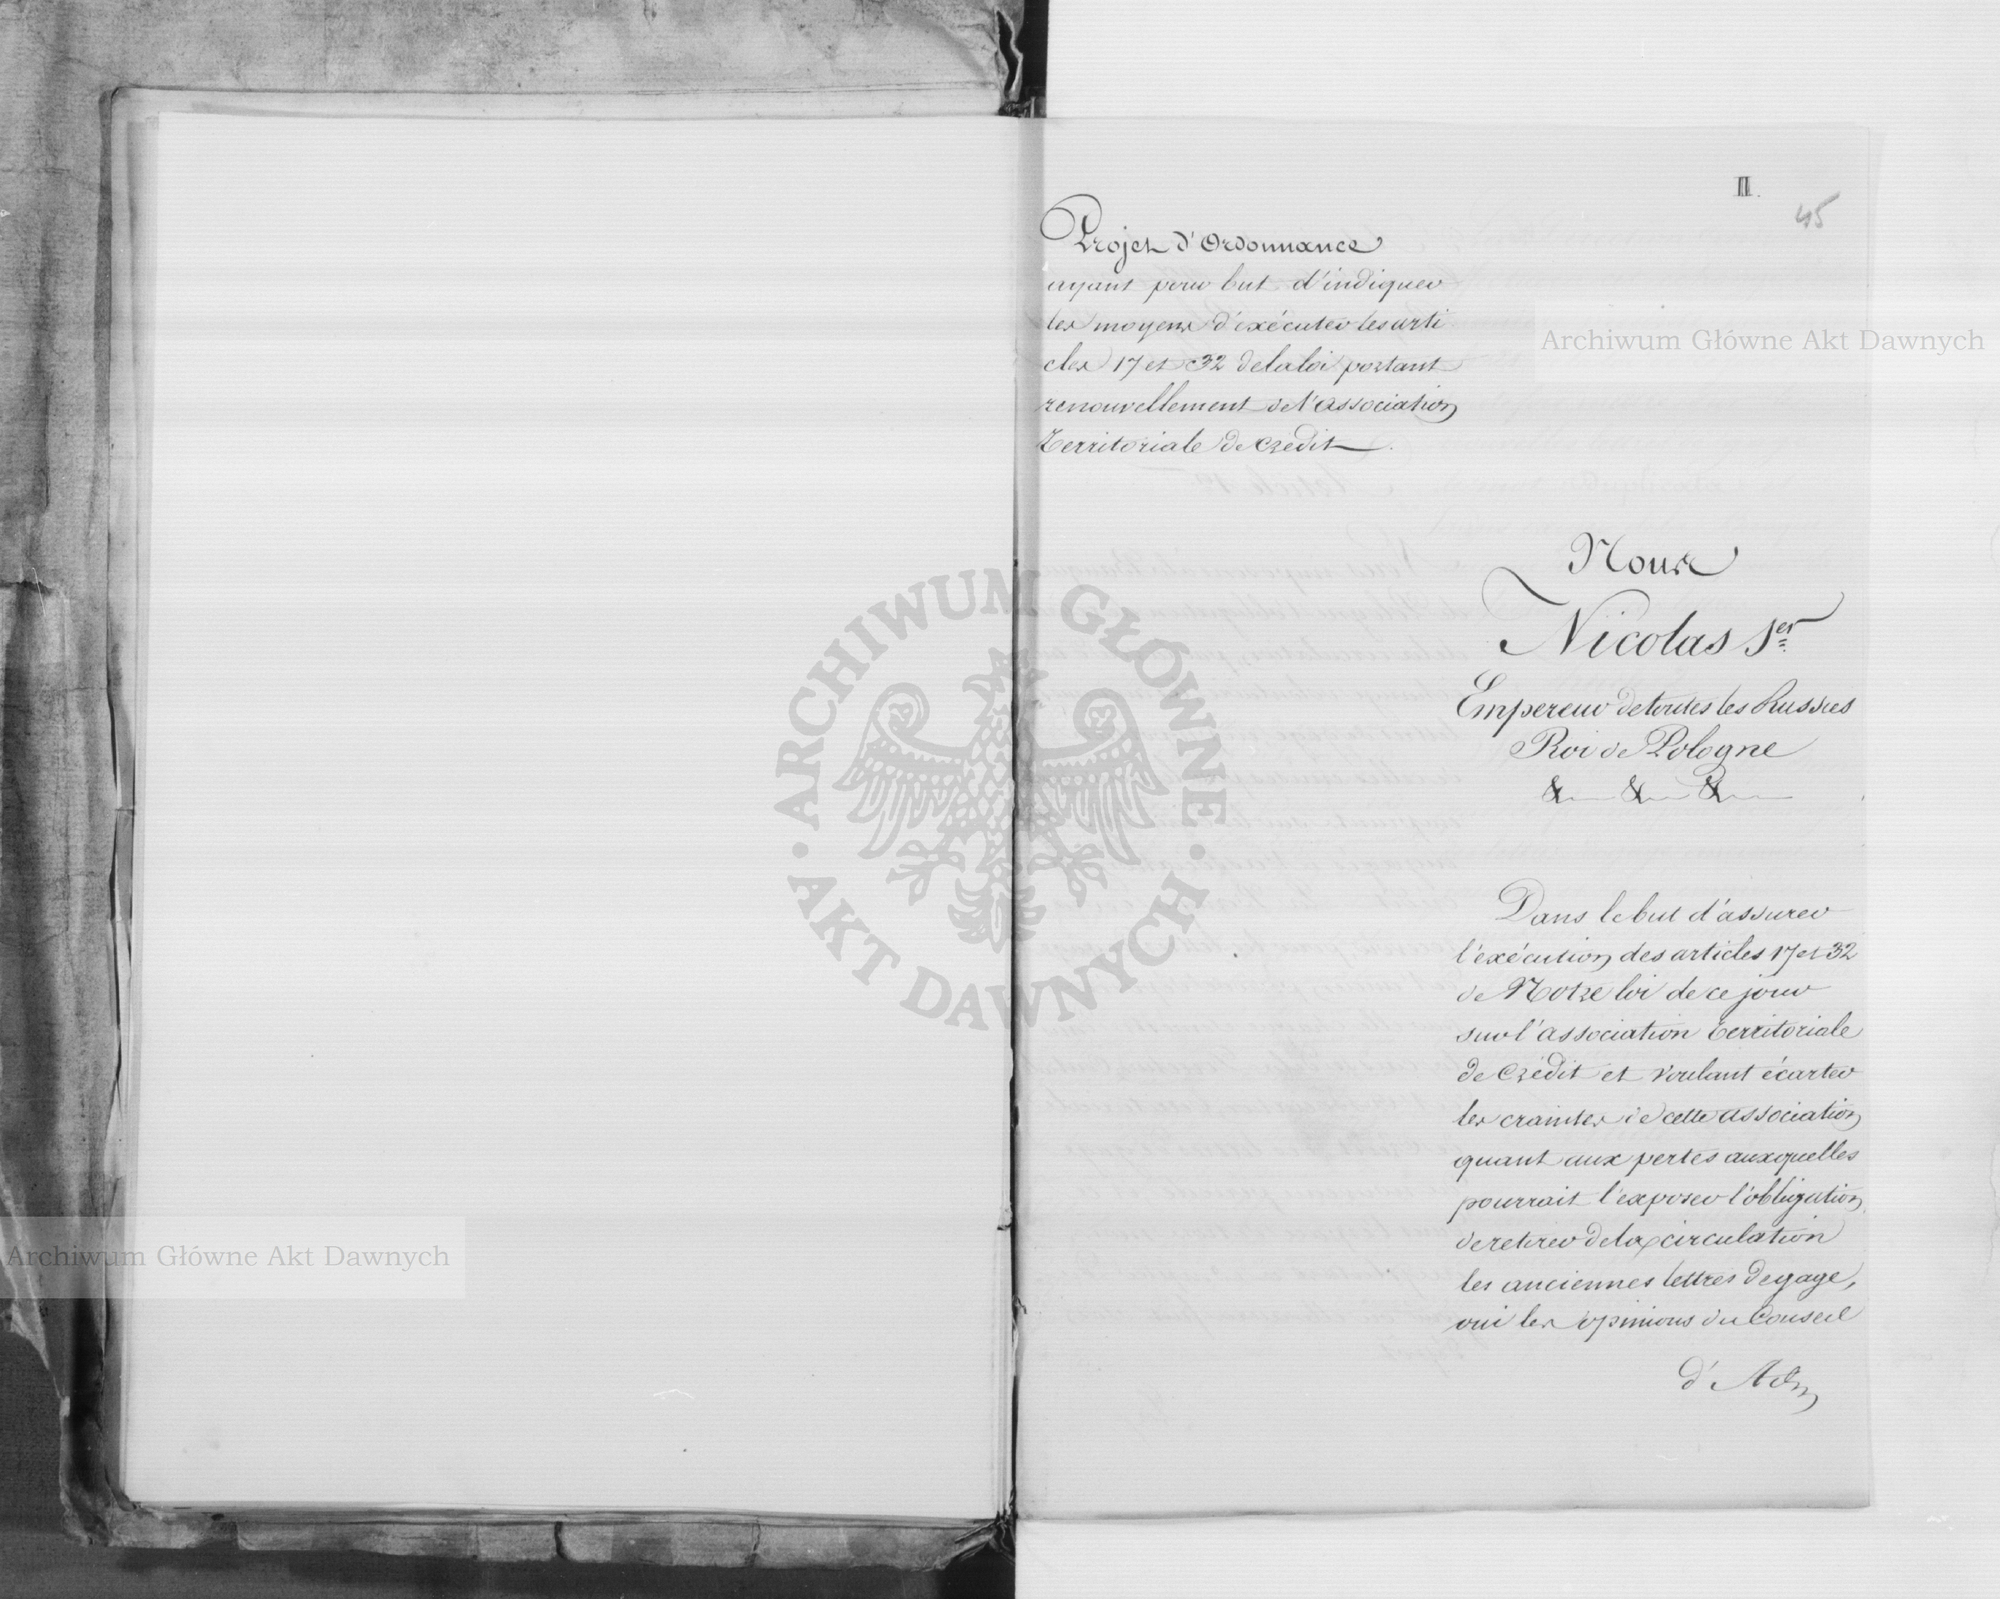 II.
45
Projet d'Ordonnance
ayant pour but d'indiquer
les moyens d'exécuter les arti
cles 17 et 32 de la loi portant
renouvellement de l'association
territoriale de crédit.
Nous
Nicolas 1er
Empereur de toutes les Russies
Roi de Pologne
& & &
Dans le but d'assurer
l'exécution des articles 17 et 32
de Notre loi de ce jour
sur l'association territoriale
de Crédit et voulant écarter
les craintes de cette association
quant aux pertes auxquelles
pourrait l'exposer l'obligation
de retirer de la circulation
les anciennes lettres de gage,
oui les opinions du Conseil
d'Adm
Archiwum Główne Akt Dawnych
ARCHIWUM GŁÓWNE
AKT DAWNYCH
Archiwum Główne Akt Dawnych